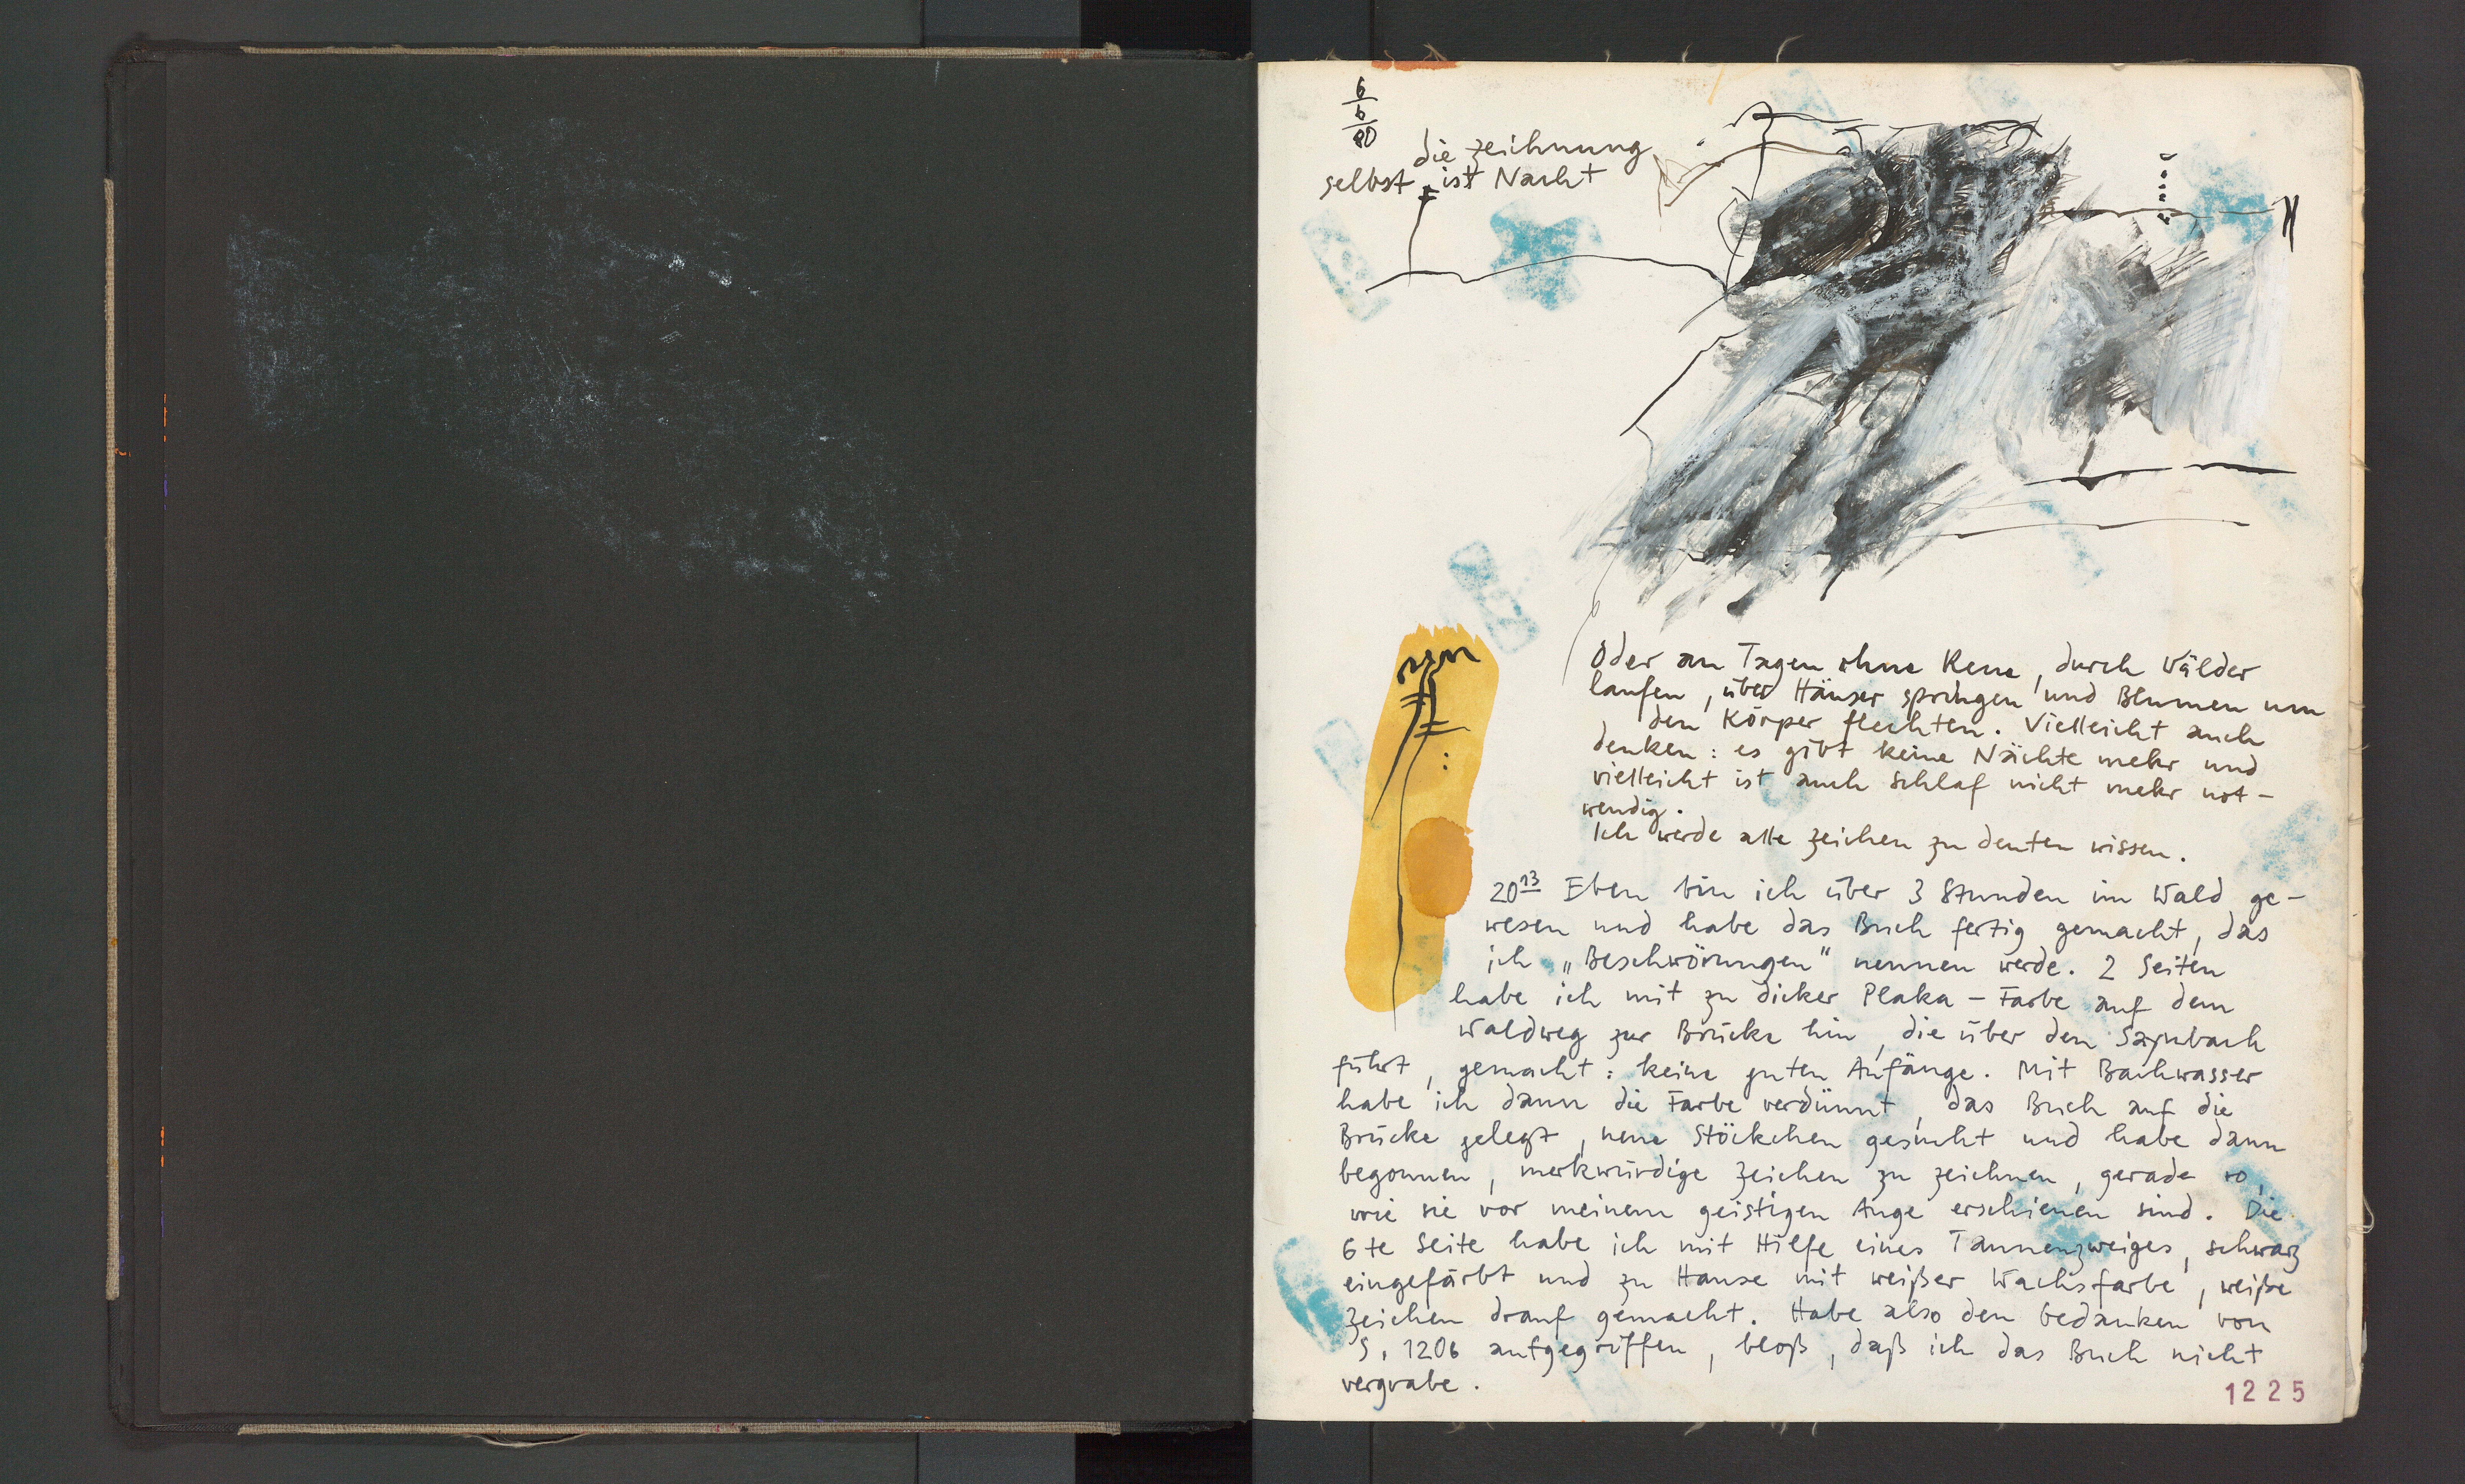 6
6
80
die Zeichnung
selbst ist Nacht
Oder an Tagen ohne Rene, durch Wälder
laufen, über Häuser springen und Blumen um
den Körper flechten. Vielleicht auch
denken: es gibt keine Nächte mehr und
vielleicht ist auch Schlaf nicht mehr not-
wendig.
Ich werde alle Zeichen zu deuten wissen.
20 13 Eben bin ich über 3 Stunden im Wald ge-
wesen und habe das Buch fertig gemacht, das
ich „Beschwörungen" nennen werde. 2 Seiten
habe ich mit zu dicker Plaka-Farbe auf dem
Waldweg zur Brücke hin, die über den Saynbach
führt, gemacht: keine guten Anfänge. Mit Bachwasser
habe ich dann die Farbe verdünnt, das Buch auf die
Brücke gelegt, neue Stöckchen gesucht und habe dann
begonnen, merkwürdige Zeichen zu zeichnen, gerade so,
wie sie vor meinem geistigen Auge erschienen sind. Die
6te Seite habe ich mit Hilfe eines Tannenzweiges, schwarz
eingefärbt und zu Hause mit weißer Wachsfarbe, weiße
Zeichen drauf gemacht. Habe also den Gedanken von
S. 1206 aufgegriffen, bloß, daß ich das Buch nicht
vergrabe.
1225